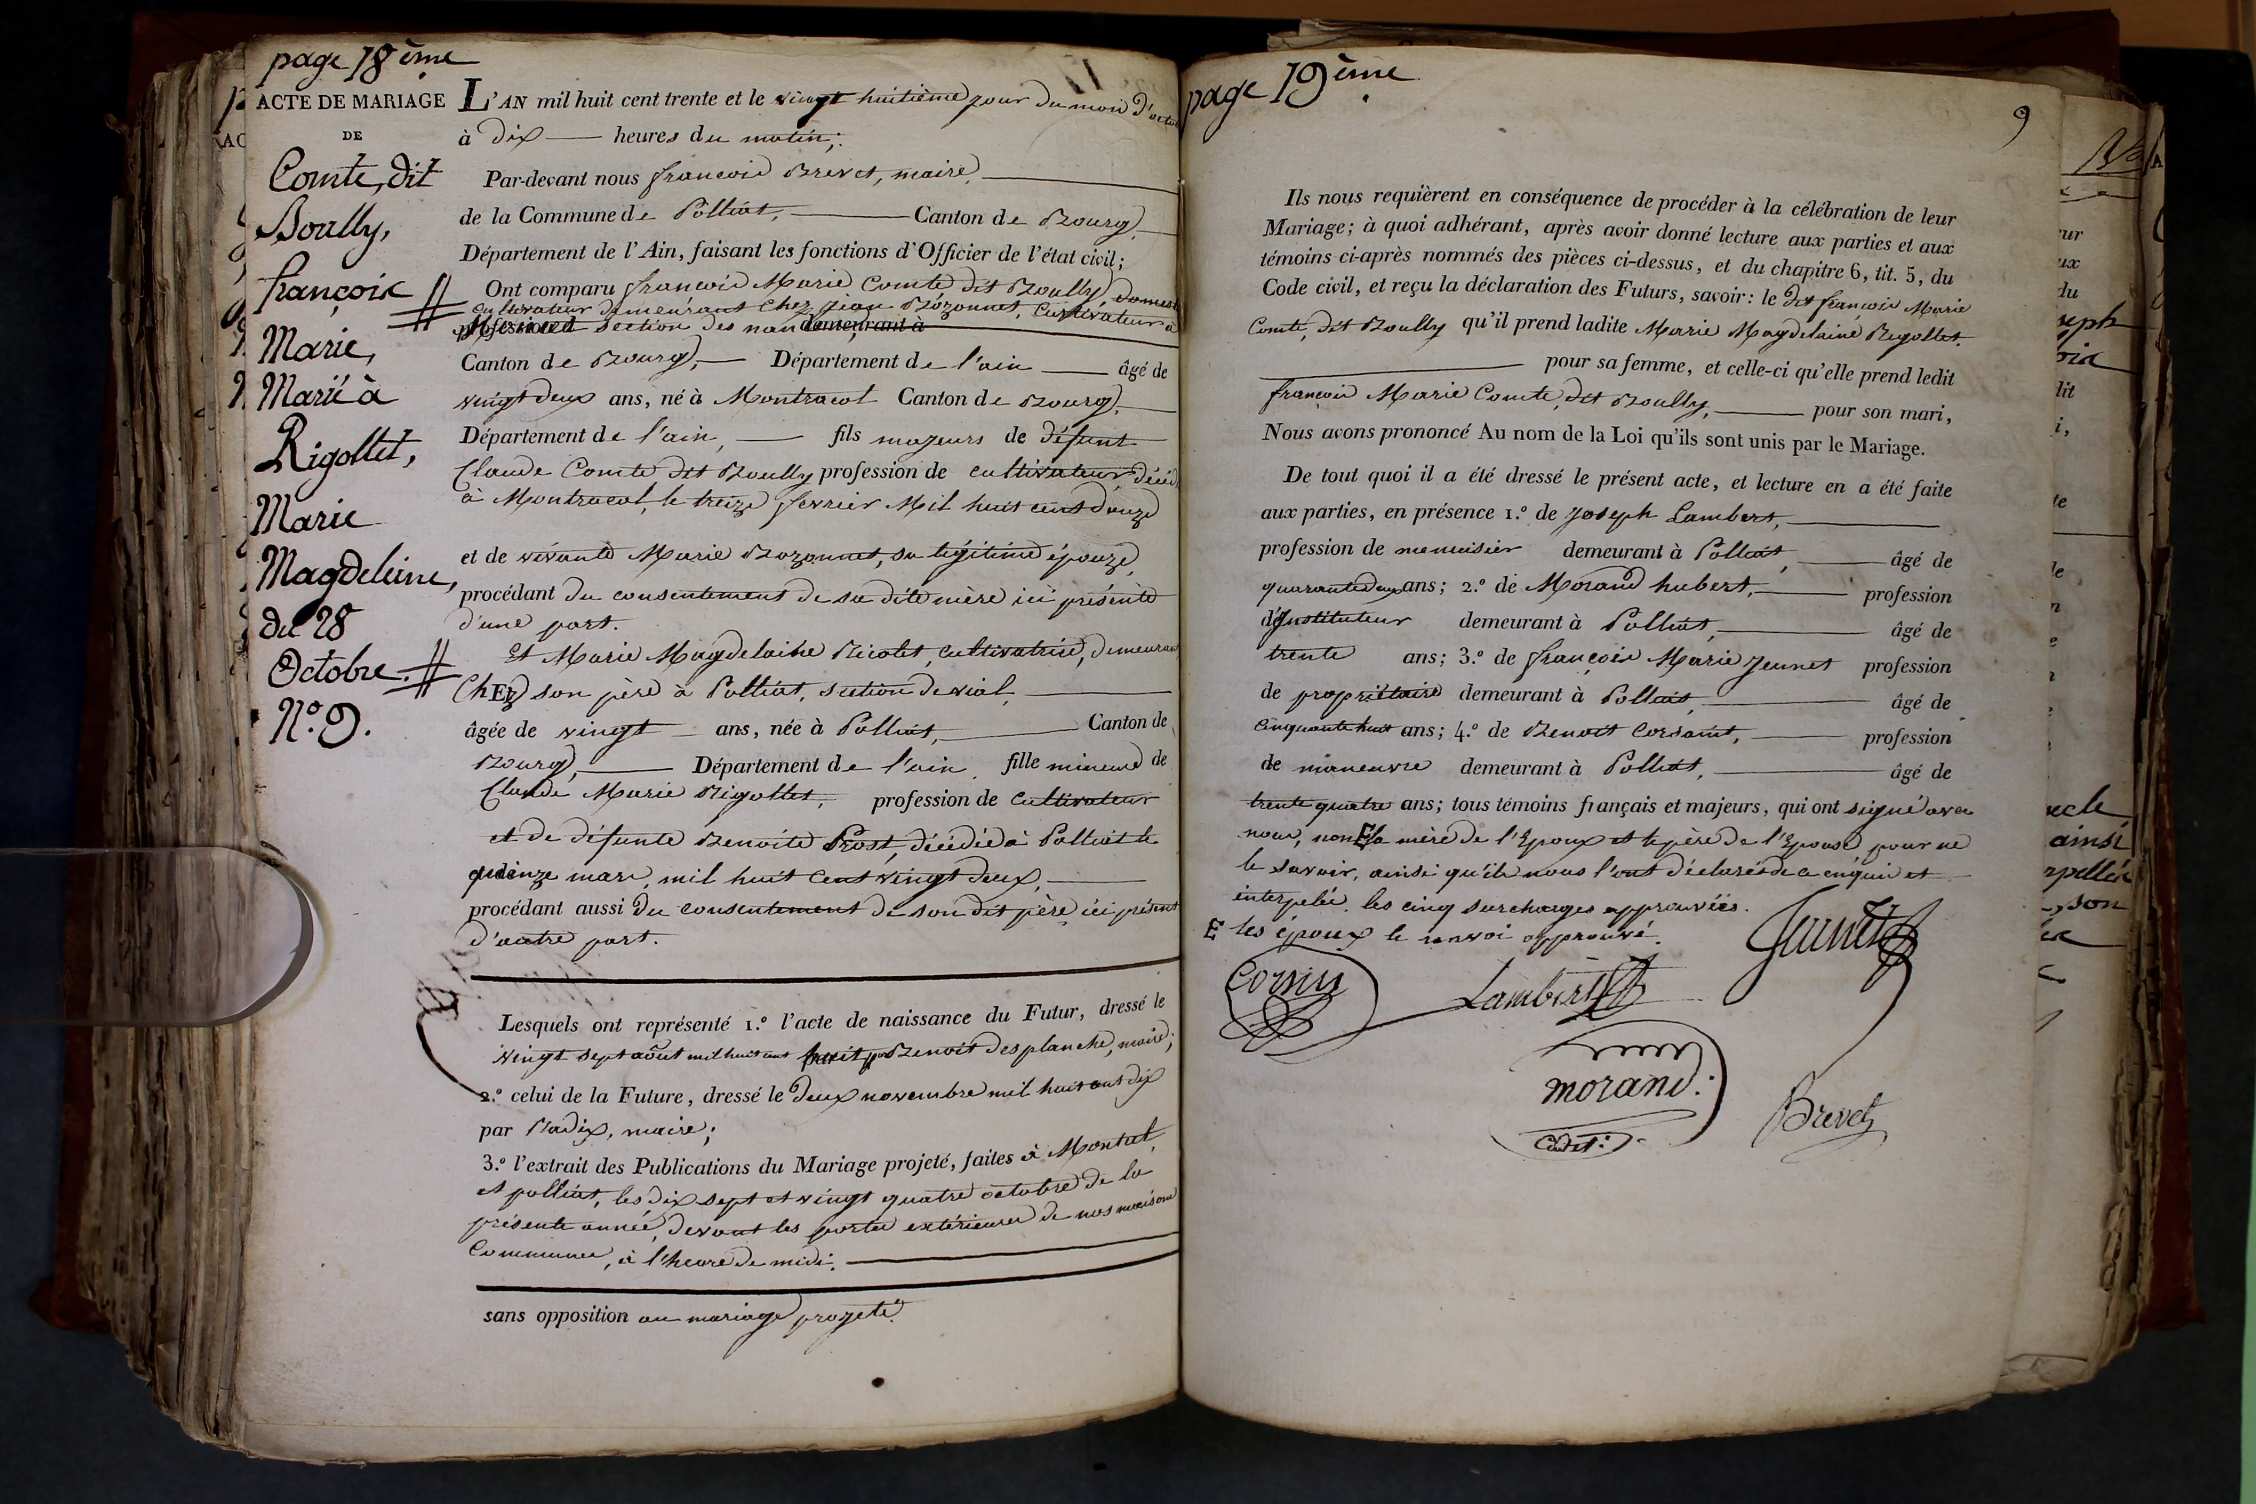 page 18ème
ACTE DE MARIAGE
DE
Comte, dit
Boully,
françois
Marie,
Marié à
Rigollet,
Marie
Magdeleine,
du 28
Octobre.
N.º 9.
L'AN mil huit cent trente et le vingt huitième jour du mois d'octo
à dix heures du matin;
Par-devant nous françois Brevet, maire,
de la Commune de Polliat, Canton de Bourg,
Département de l'Ain, faisant les fonctions d'Officier de l'état civil;
Ont comparu françois Marie Comte dit Boully, domest
cultivateur demeurant chez jean Bozonnet, cultivateur à
section des demeurant à
Canton de Bourg, Département de l'ain âgé de
vingt deux ans, né à Montracol Canton de Bourg,
Département de l'ain, fils majeurs de défunt
Claude Comte dit Boully profession de cultivateur, décéd
à Montracol, le treize fevrier Mil huit cent douze
et de vivante Marie Bozonnet, sa légitime épouze,
procédant du consentement de sa dite mère ici présente
d'une part.
Et Marie Magdelaine Ricolet, cultivatrice, demeurant
chEz son père à Polliat, section de vial,
âgée de vingt ans, née à Polliat, Canton de
Bourg, Département de l'ain, fille mineure de
Claude Marie Rigollet, profession de cultivateur
et de défunte Benoite Prost, décédée à Polliat le
quinze mars, mil huit cent vingt deux,
procédant aussi du consentement de son dit père ici présent
d'autre part.
Lesquels ont représenté 1.º l'acte de naissance du Futur, dressé le
vingt sept août mil huit cent huit par Benoit desplanche, maire;
2.º celui de la Future, dressé le deux novembre mil huit cent dix
par Badix, maire;
3.º l'extrait des Publications du Mariage projeté, faites à Montcet,
et polliat, les dix sept et vingt quatre octobre de la
présente année, devant les portes extérieures de nos maisons
Communes, à l'heure de midi.
sans opposition au mariage projeté.
page 19ème
9
Ils nous requièrent en conséquence de procéder à la célébration de leur
Mariage; à quoi adhérant, après avoir donné lecture aux parties et aux
témoins ci-après nommés des pièces ci-dessus, et du chapitre 6, tit. 5, du
Code civil, et reçu la déclaration des Futurs, savoir: le dit françois Marie
Comte, dit Boully qu'il prend ladite Marie Magdelaine Rigollet.
pour sa femme, et celle-ci qu'elle prend ledit
françois Marie Comte, dit Boully, pour son mari,
Nous avons prononcé Au nom de la Loi qu'ils sont unis par le Mariage.
De tout quoi il a été dressé le présent acte, et lecture en a été faite
aux parties, en présence 1.º de Joseph Lambert,
profession de menuisier demeurant à Polliat, âgé de
quarante deux ans; 2.º de Morand hubert, profession
d'Instituteur demeurant à Polliat, âgé de
trente ans; 3.º de françois Marie Jeunet profession
de propriétaire demeurant à Polliat, âgé de
cinquante huit ans; 4.º de Benoit Corsaint, profession
de maneuvre demeurant à Polliat, âgé de
trente quatre ans; tous témoins français et majeurs, qui ont signé avec
nous, non E la mère de l'Epoux et le père de l'Epouse pour ne
le savoir, ainsi qu'ils nous l'ont déclarés de ce enquis et
interpelés. les cinq surcharges approuvées.
E les époux le renvoi approuvé.
Jeunet
Lambert
morand.
cadet:
Brevet